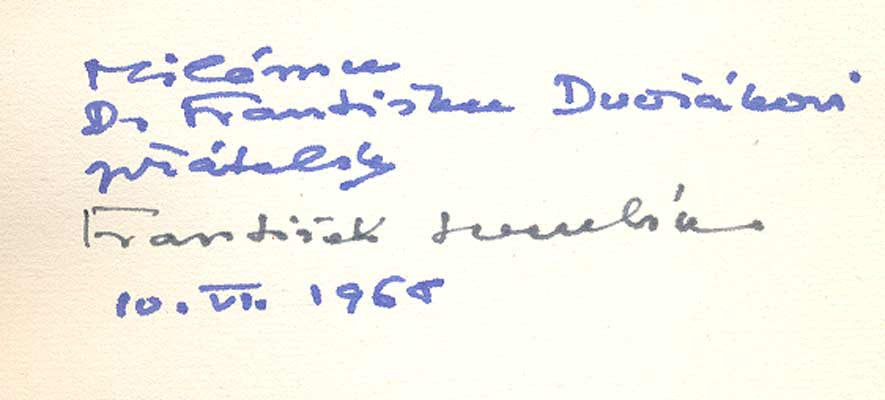 Milému
Dr Františku Dvořákovi
přátelsky
František
10. VI. 1965